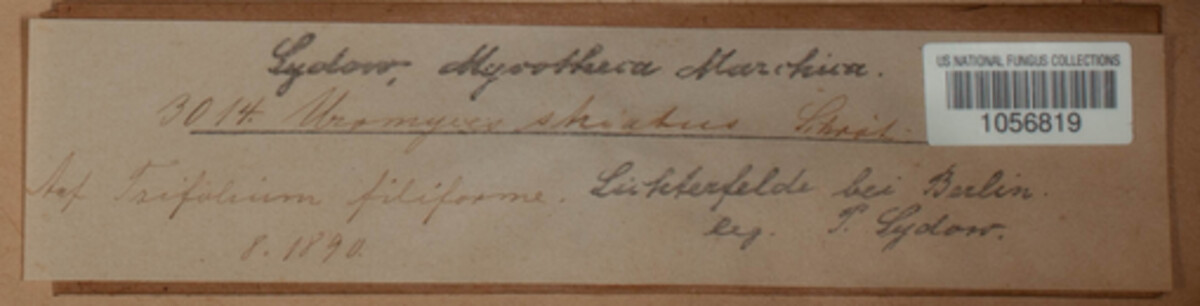 Sydow, Mycotheca Marchica.
3014. Uromyces striatus Schröt.
Auf Trifolium filiforme. Lichterfelde bei Berlin.
8. 1890. leg. P. Sydow.
US NATIONAL FUNGUS COLLECTIONS
1056819